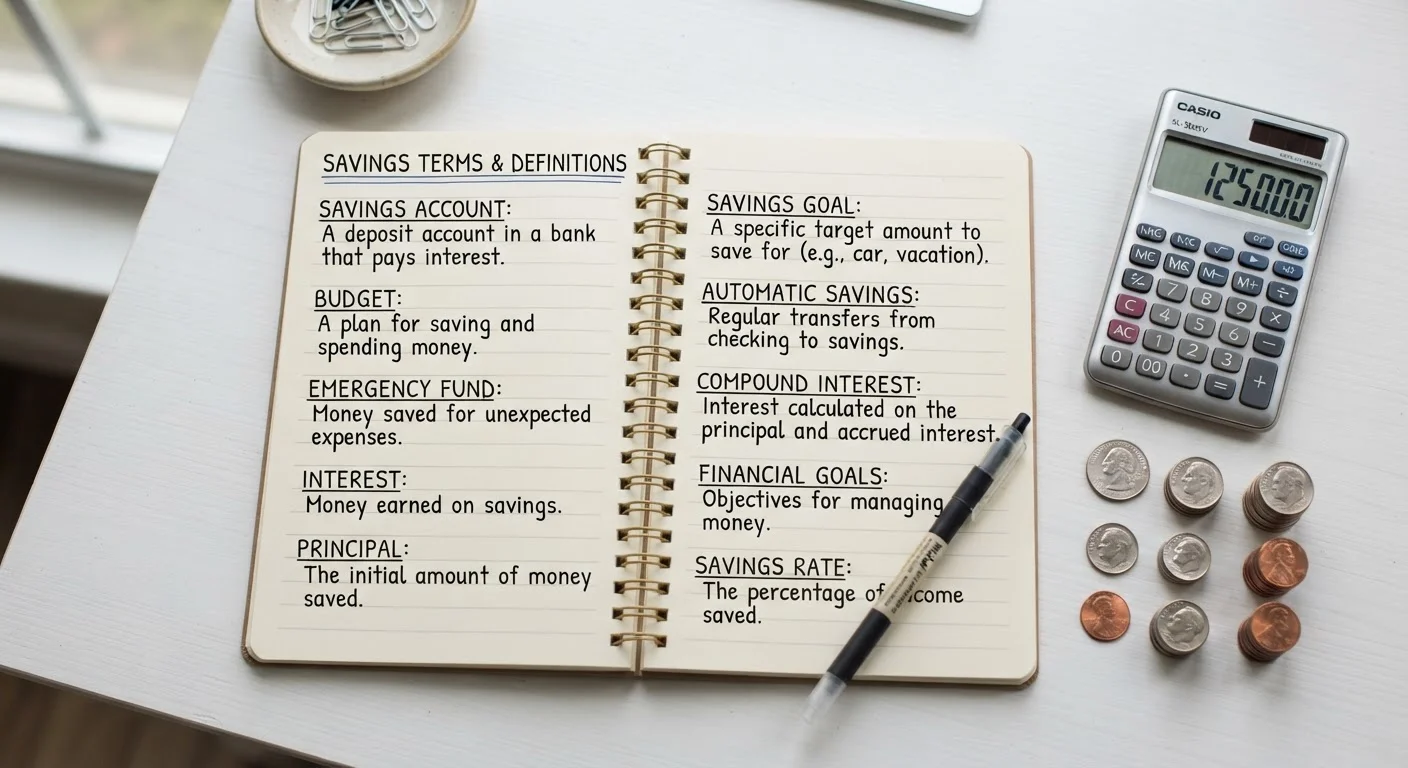 SAVINGS TERMS & DEFINITIONS
SAVINGS ACCOUNT:
A deposit account in a bank
that pays interest.
BUDGET:
A plan for saving and
spending money.
EMERGENCY FUND:
Money saved for unexpected
expenses.
INTEREST:
Money earned on savings.
PRINCIPAL:
The initial amount of money
saved.
SAVINGS GOAL:
A specific target amount to
save for (e.g., car, vacation).
AUTOMATIC SAVINGS:
Regular transfers from
checking to savings.
COMPOUND INTEREST:
Interest calculated on the
principal and accrued interest.
FINANCIAL GOALS:
Objectives for managing
money.
SAVINGS RATE:
The percentage of come
saved.
CASIO
125000
MC M- M+ ÷
7 8 9 ×
C 4 5 6 −
AC 1 2 3
0 00 · = +